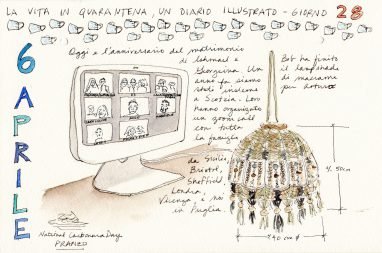 LA VITA IN QUARANTENA UN DIARIO ILLUSTRATO - GIORNO 28
6 APRILE
Oggi e l'anniversario del matrimonio
di Ishmael e
Georgina. Un
anno fa siamo
stati insieme
a Scozia. Loro
hanno organizzato
un zoom call
con tutta
la famiglia
da Sicilia,
Bristol,
Sheffield,
Londra,
Vicenza, e noi
in Puglia.
Bob ha finito
il lampshade
di macrame
per
50cm
40 cm
National Carbonara Day
PRANZO